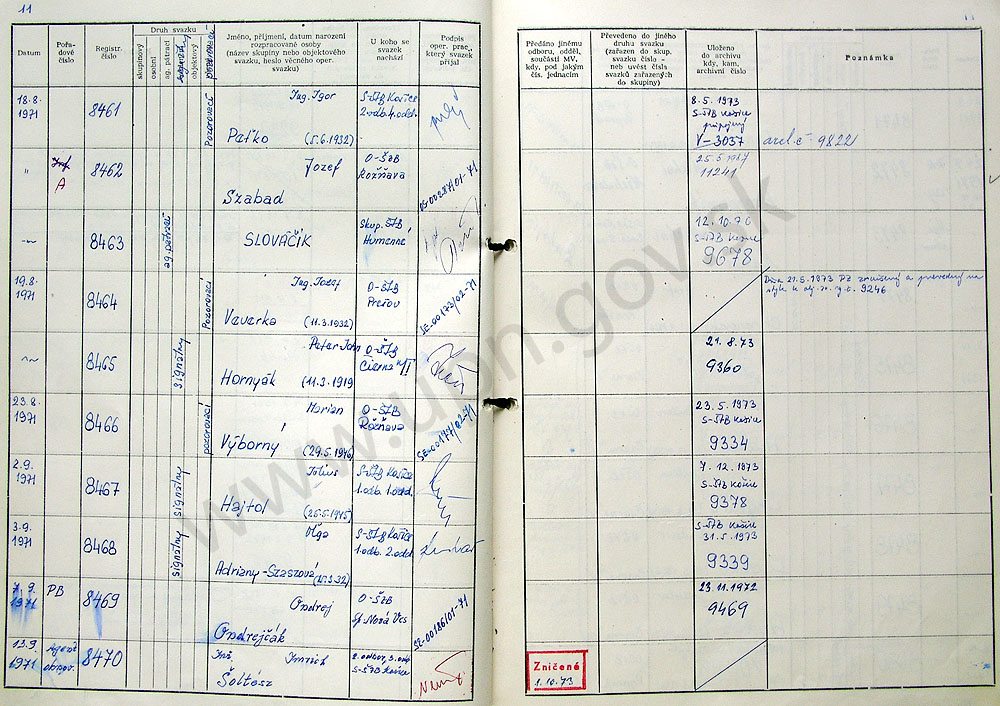 11
Datum
Pořa-
dové
číslo
Registr.
číslo
Druh svazku
skupinový
osobní
ag. pátrací
signálny
objektový
pozorovací
Jméno, příjmení, datum narození
rozpracované osoby
(název skupiny nebo objektového
svazku, heslo věcného oper.
svazku)
U koho se
svazek
nachází
Podpis
oper. prac.,
který svazek
přijal
Předáno jinému
odboru, odděl.
součásti MV,
kdy, pod jakým
čís. jednacím
Převedeno do jiného
druhu svazku
(zařazen do skup.
svazku číslo -
neb uvést čísla
svazků zařazených
do skupiny)
Uloženo
do archivu
kdy, kam,
archivní číslo
Poznámka
18.8.
1971
8461
Pozorovací
Ing. Igor
Paťko
(5.6.1932)
S-ŠtB Košice
2.odb. 4.odd.
8.5.1973
S-ŠtB Košice
pripojený
V-3037
arch.č. 9822
"
A
8462
Jozef
Szabad
O-ŠtB
Rožňava
25.5.1987
11241
-"-
8463
ag. pátrací
SLOVÁČIK
Skup. ŠtB
Humenné
12.10.76
S-ŠtB Košice
9678
19.8.
1971
8464
Pozorovací
Ing. Jozef
Veverka
(11.3.1932)
O-ŠtB
Prešov
SE-00173/02-71
Dňa 21.5.1973 PZ zrušený a prevedený na
-"-
8465
signálny
Peter John
Hornyák
(11.3.1919
O-ŠtB
Čierna n/T
21.8.73
9360
23.8.
1971
8466
pozorovací
Marian
Výborný
(29.5.1946)
O-ŠtB
Rožňava
SE-00177/02-71
23.5.1973
S-ŠtB Košice
9334
2.9.
1971
8467
signálny
Július
Hajtol
(26.5.1945)
S-ŠtB Košice
1.odb. 1.odd.
7.12.1973
S-ŠtB Košice
9378
3.9.
1971
8468
signálny
Oľga
Adriány-Szaszová
S-ŠtB Košice
1.odb. 2.odd.
S-ŠtB Košice
31.5.1973
9339
7.9.
1971
PB
8469
Ondrej
Ondrejčák
O-ŠtB
Sp. Nová Ves
SE-00186/01-71
23.11.1972
9469
13.9.
1971
Agent
obnov.
8470
Ing. Imrich
Šoltész
2.odbor, 3.odd.
S-ŠtB Košice
Zničené
1.10.73
www.upn.gov.sk